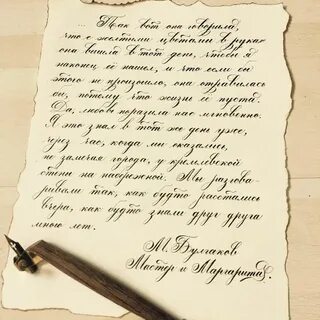 ... Так вот она говорила,
что с желтыми цветами в руках
она вышла в тот день, чтобы я
наконец ее нашел, и что если бы
этого не произошло, она отравилась
бы, потому что жизнь ее пуста.
Да, любовь поразила нас мгновенно.
Я это знал в тот же день уже,
через час, когда мы оказались,
не замечая города, у кремлевской
стены на набережной. Мы разгова-
ривали так, как будто расстались
вчера, как будто знали друг друга
много лет.
М. Булгаков
Мастер и Маргарита.